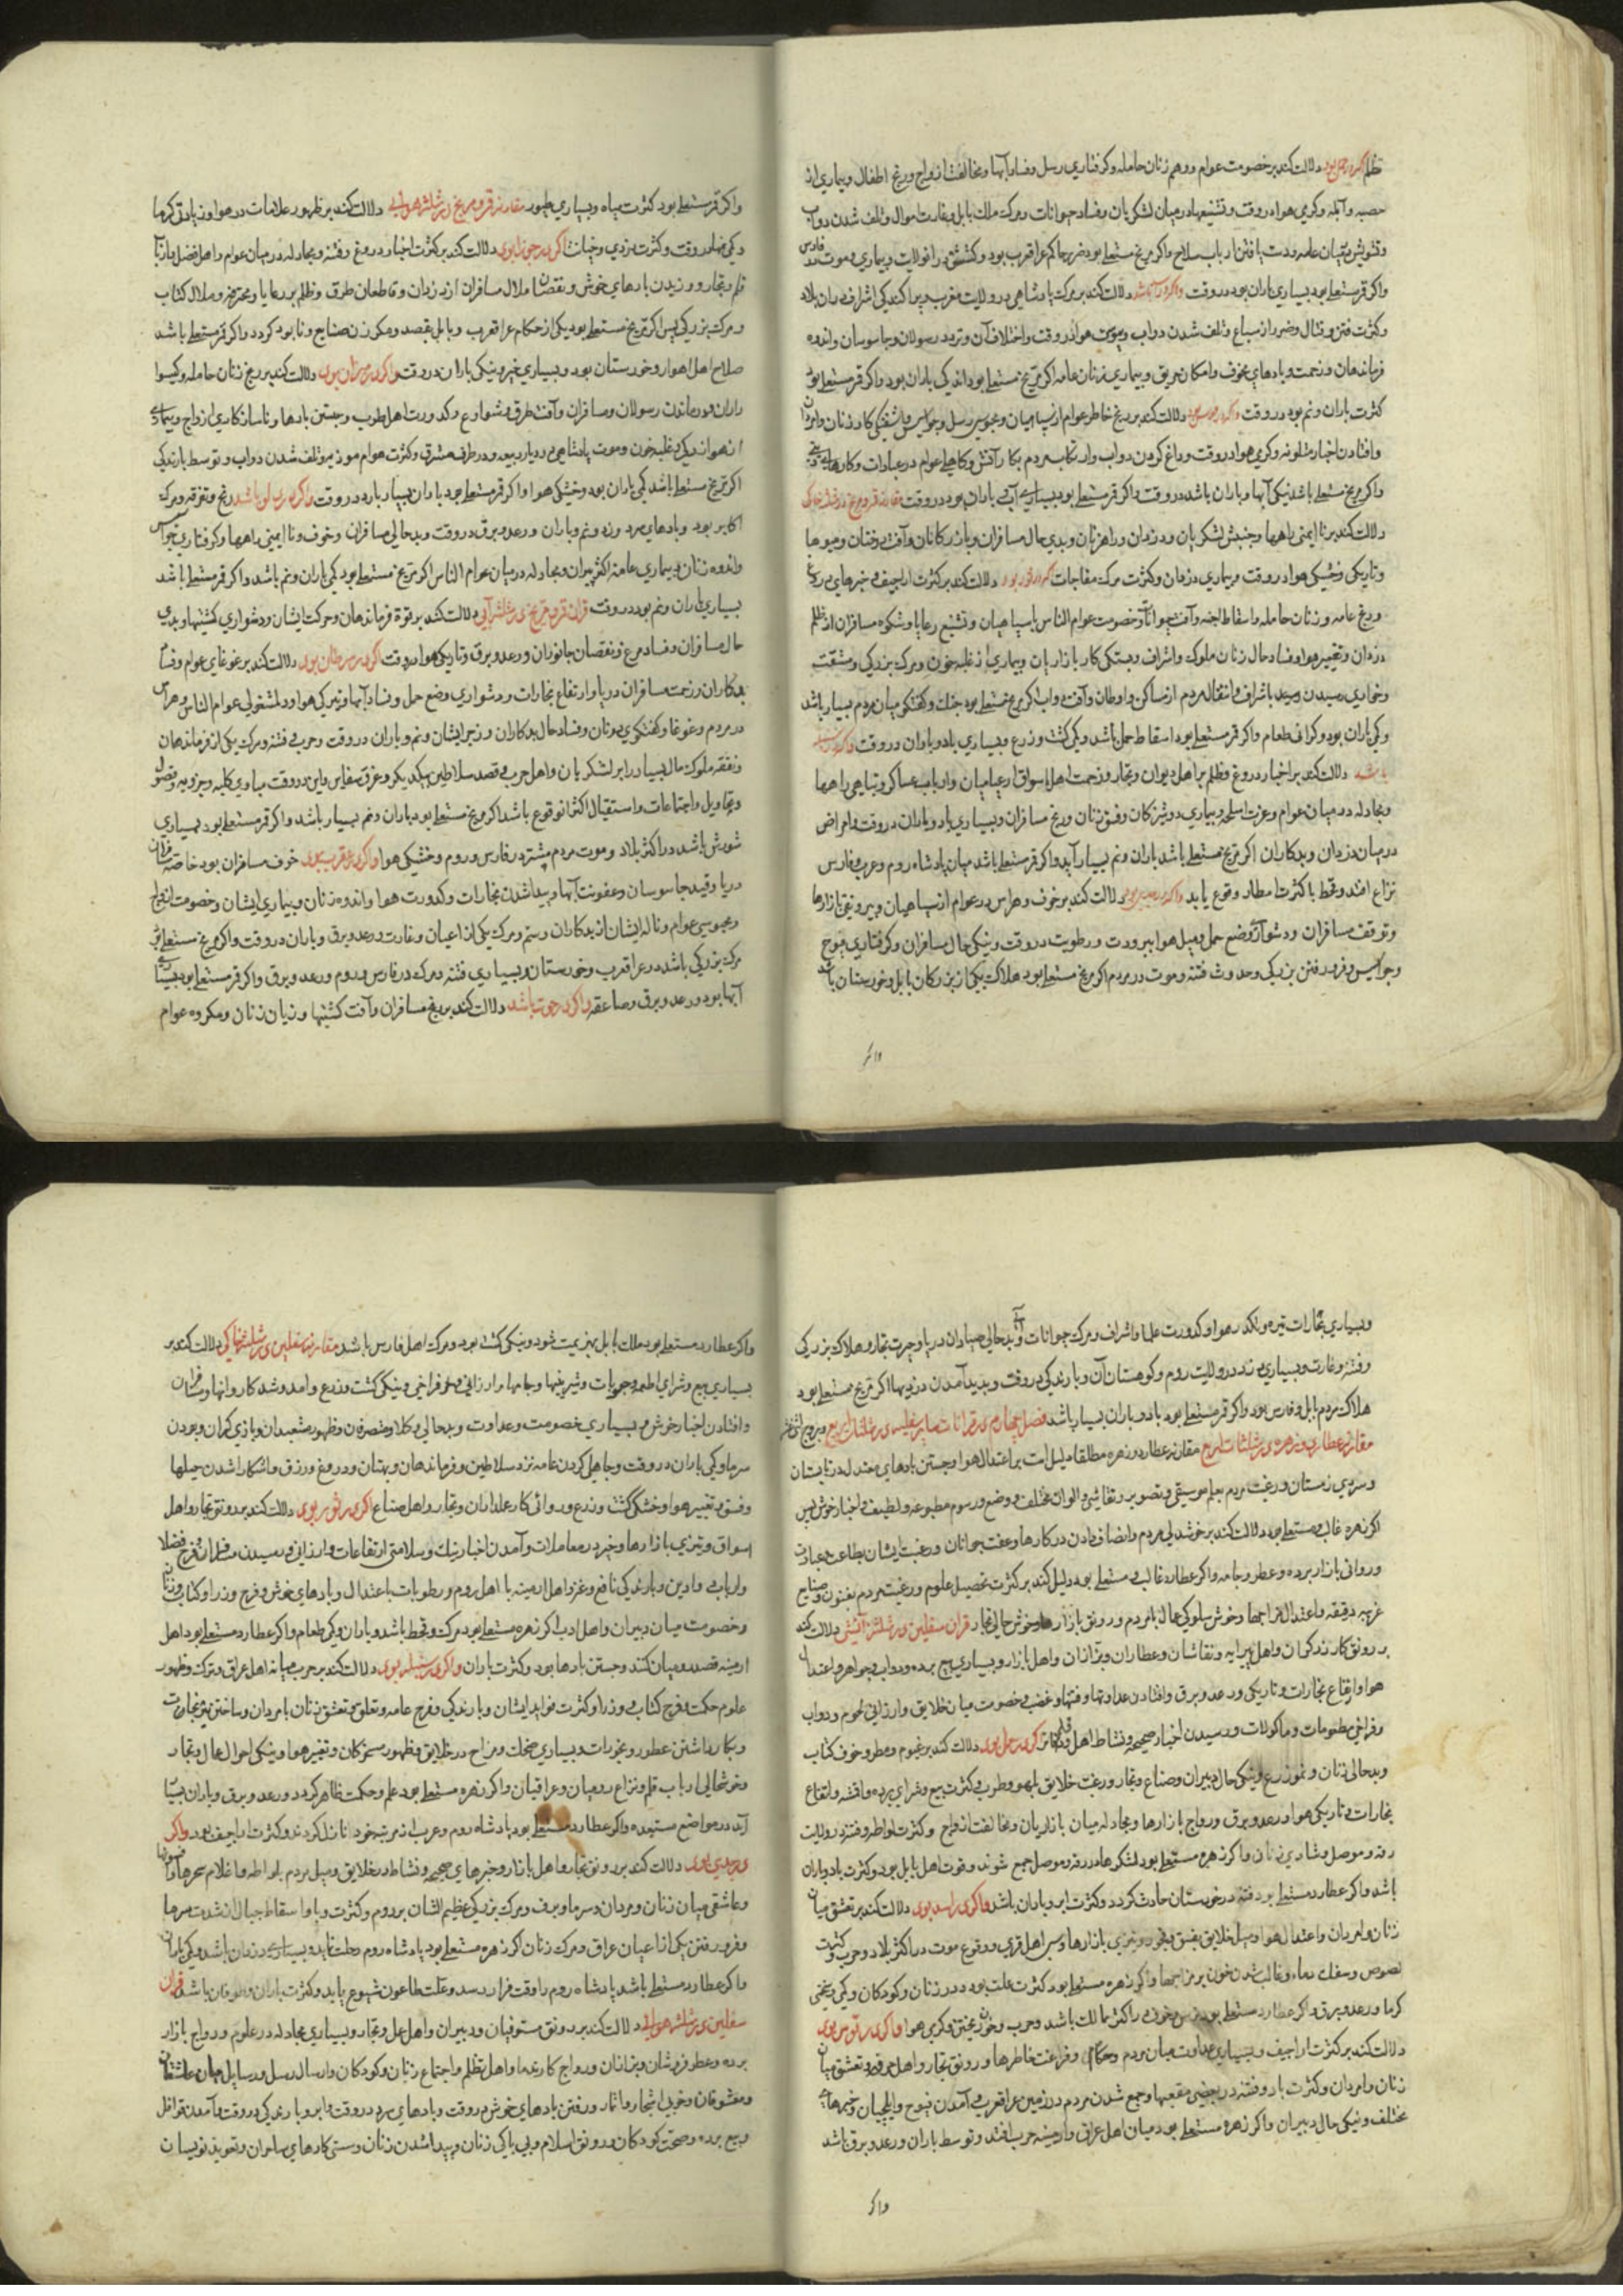 دلالت کند بر خصومت عوام و وهم زنان حامله و کرفتاری رسل و فساد آبها و مخالفت ازواج و رنج اطفال و بیماری از
حصبه و آبله و کرمی هوا در وقت و فتنیها در میان لشکریان و فساد حیوانات و مرک ملک بابل و غارت اموال و تلف شدن دواب
واکر قمر مستعلی بود بسیاری باران بود در وقت دلالت کند بر مرک پادشاهی در ولایت مغرب
و کثرت فتن و قتال و ضرر از سباع و تلف شدن دواب و یبوست هوا در وقت و اختلاف آن و تردد رسولان و جاسوسان و اندوه
فرماندهان و زحمت و بادهای مخوف و امکان حریق و بیماری زنان عامه اکر مریخ مستعلی بود اندکی باران بود واکر قمر مستعلی بود
کثرت باران و نم بود در وقت دلالت کند بر رنج خاطر عوام از سپاهیان و
وافتادن اخبار متلونه و کرمی هوا در وقت و داغ کردن دواب و ارتکاب مردم بکار آتش و کاهلی عوام در عبادات و کارهای
واکر مریخ مستعلی باشد نیکی آبها و باران باشد در وقت واکر قمر مستعلی بود بسیاری آب و باران بود در وقت مقارنه قمر و مریخ در مثلثه خاکی
دلالت کند بر نا ایمنی راهها و جنبش لشکریان و دزدان و راهزنان و بدی حال مسافران و بازرکانان و آفت درختان و میوها
و تاریکی و خشکی هوا در وقت و بیماری دزدان و کثرت مرک مفاجات اکر در ثور بود دلالت کند بر کثرت اراجیف و خبرهای دروغ
و رنج عامه و زنان حامله و اسقاط اجنه و آفت حیوانات و خصومت عوام الناس با سپاهیان و تشنیع رعایا و شکوه مسافران از ظلم
دزدان و تغییر هوا و فساد حال زنان ملوک و اشراف و بستکی کار بازاریان و بیماری از غلبه خون و مرک بزرکی و مشقت
و انتقال مردم از مساکن و اوطان و آفت دواب اکر مریخ مستعلی بود جنک و کفتکو میان مردم بسیار باشد
و کمی باران بود و کرانی طعام واکر قمر مستعلی بود اسقاط حمل باشد و نیکی کشت و زرع و بسیاری باد و باران در وقت واکر در سنبله
باشد دلالت کند بر اخبار دروغ و ظلم بر اهل دیوان و تجار و زحمت اهل اسواق از عیاران و ارباب عساکر و تباهی راهها
و مجادله در میان عوام و عزت اسلحه و بیماری دوشیزکان و فسق زنان و رنج مسافران و بسیاری باد و باران در وقت و امراض
در میان دزدان و بدکاران اکر مریخ مستعلی باشد باران و نم بسیار آید واکر قمر مستعلی باشد میان پادشاه روم و عرب و فارس
نزاع افتد و قحط با کثرت امطار وقوع یابد واکر در جدی بود دلالت کند بر خوف و هراس در عوام از سپاهیان و بی رونقی بازارها
و توقف مسافران و دشواری وضع حمل و میل هوا ببرودت و رطوبت در وقت و نیکی حال مسافران و کرفتاری
و جواسیس و فرو رفتن بزرکی و حدوث فتنه و موت در مردم اکر مریخ مستعلی بود هلاکت یکی از بزرکان بابل و خوزستان باشد
واکر
واکر قمر مستعلی بود کثرت سپاه و بسیاری طیور مقارنه قمر و مریخ در مثلثه هوائی دلالت کند بر ظهور علامات در هوا و زیادتی کرما
و کمی نم در وقت و کثرت دزدی و خیانت اکر در جوزا بود دلالت کند بر کثرت اخبار دروغ و فتنه و مجادله در میان عوام و اهل فضل و ارباب
قلم و تجار و وزیدن بادهای خوش و نقصان مال مسافران از دزدان و قاطعان طرق و ظلم بر رعایا و محترفه و ملال کتاب
و مرک بزرکی پس اکر مریخ مستعلی بود یکی از حکام عراق عرب و بابل بقصد و مکر زن ضایع و نابود کردد واکر قمر مستعلی باشد
صلاح اهل اهواز و خوزستان بود و بسیاری خیر و نیکی باران در وقت واکر در میزان بود دلالت کند بر رنج زنان حامله و کیسو
داران و درماندن رسولان و مسافران و آفت طرق و شوارع و کدورت اهل طرب و جستن بادها و ناسازکاری ازواج و بیماری
اکر مریخ مستعلی باشد کمی باران بود و خشکی هوا واکر قمر مستعلی بود باران بسیار بارد در وقت واکر در دلو باشد رنج و تفرقه و مرک
اکابر بود و بادهای سرد وزد و نم و باران و رعد و برق در وقت و بد حالی مسافران و خوف و نا ایمنی راهها و کرفتاری
واندوه زنان و بیماری عامه اکثر پیران و مجادله در میان عوام الناس اکر مریخ مستعلی بود کمی باران و نم باشد واکر قمر مستعلی باشد
بسیاری باران و نم بود در وقت قران قمر و مریخ در مثلثه آبی دلالت کند بر قوة فرماندهان و حرکت ایشان و دشواری کشتیها و بدی
حال مسافران و فساد مرغ و نقصان جانوران و رعد و برق و تاریکی هوا در وقت اکر در سرطان بود دلالت کند بر غوغای عوام و فساد
بدکاران و زحمت مسافران دریا و ارتفاع بخارات و دشواری وضع حمل و فساد آبها و تیرکی هوا و دلمشغولی عوام الناس و هراس
در مردم و غوغا و کفتکوی مردم و فساد حال بدکاران و زجر ایشان و نم و باران در وقت و حرب و فتنه و مرک یکی از فرماندهان
شورش باشد در اکثر بلاد و موت مردم بیشتر در فارس و روم و خشکی هوا واکر در عقرب بود خوف مسافران بود خاصه
دریا و قید جاسوسان و عفونت آبها و پیدا شدن بخارات و کدورت هوا و اندوه زنان و بیماری ایشان و خصومت ازواج
و محبوسی عوام و ناله ایشان از بدکاران و ستم و مرک یکی از اعیان و غارت و رعد و برق و باران در وقت واکر مریخ مستعلی بود
مرک بزرکی باشد در عراق عرب و خوزستان و بسیاری فتنه و مرک در فارس و روم و رعد و برق واکر قمر مستعلی بود بسیاری
آبها بود و رعد و برق و صاعقه واکر در حوت باشد دلالت کند بر رنج مسافران و آفت کشتیها و زیان زنان و مکروه عوام
و بسیاری بخارات تیره و تکدر هوا و کدورت علما و اشراف و مرک حیوانات آبی و بد حالی صیادان دریا و حیرت تجار و هلاک بزرکی
و فتنه و غارت و بسیاری دزد در ولایت روم و کوهستان آن و بارندکی در وقت و پدید آمدن دزدیها اکر مریخ مستعلی بود
هلاک مردم بابل و فارس بود واکر قمر مستعلی بود باد و باران بسیار باشد فصل چهارم در قرانات
مقارنه عطارد و زهره در مثلثات اربع مقارنه عطارد و زهره مطلقا دلیل است بر اعتدال هوا و جستن بادهای معتدل در تابستان
و سردی زمستان و رغبت مردم بعلم موسیقی و تصویر و نقاشی و الوان مختلف و وضع رسوم مطبوعه و لطیف و اخبار خوش پس
اکر زهره غالب و مستعلی بود دلالت کند بر خوشدلی مردم و انصاف دادن در کارها و عفت جوانان و رغبت ایشان بطاعت و عبادت
و روانی بازار برده و عطر و جامه واکر عطارد غالب و مستعلی بود دلیل کند بر کثرت تحصیل علوم و رغبت مردم بفنون و صنایع
غریبه دقیقه و اعتدال مزاجها و خوش سلوکی عمال با مردم و رونق بازارها و خوش حالی تجار قران سفلیین در مثلثه آتشی دلالت کند
بر رونق کار زرکران و اهل پیرایه و نقاشان و عطاران و بزازان و اهل بازار و بسیاری بیع برده و دواب و جواهر و اعتدال
هوا و ارتفاع بخارات و تاریکی و رعد و برق و افتادن عداوتها و فتنها و غضب و خصومت میان خلایق و ارزانی لحوم و دواب
و فراخی مطعومات و ماکولات و رسیدن اخبار صحیحه و نشاط اهل قلم اکر در حمل بود دلالت کند بر غیوم و مطر و خوف کتاب
و بد حالی زنان و نمو زرع و نیکی حال دبیران و صناع و تجار و رغبت خلایق بلهو و طرب و کثرت بیع و شرای برده و اقمشه و ارتفاع
بخارات و تاریکی هوا و رعد و برق و رواج بازارها و مجادله میان بازاریان و مخالفت ازواج و کثرت لواطه و فتنه در ولایت
رقه و موصل و شادی زنان واکر زهره مستعلی بود لشکرها در رقه و موصل جمع شوند و قوت اهل بابل بود و کثرت باد و باران
باشد واکر عطارد مستعلی بود فتنه در خوزستان حادث کردد و کثرت ابر و باران باشد واکر در اسد بود دلالت کند بر تعشق میان
زنان و امردان و اعتدال هوا و میل خلایق بفسق و فجور و تیزی بازارها و سیر اهل قری و وقوع موت در اکثر بلاد و حرب و کثرت
لصوص و سفک دماء و غالب شدن خون بر مزاجها واکر زهره مستعلی بود کثرت علت بود در زنان و کودکان و کمی و نمی
کرما و رعد و برق واکر عطارد مستعلی بود ترس و خوف در اکثر ممالک باشد و حرب و خون ریختن و کرمی هوا واکر در قوس بود
دلالت کند بر کثرت اراجیف و بسیاری عداوت میان مردم و حکام و فراغت خاطرها و رونق تجار و اهل حرفه و تعشق میان
زنان و امردان و کثرت باد و فتنه در بعضی بقعها و جمع شدن مردم در زمین عراق عرب و آمدن فیوج و ایلچیان و خبرهای
مختلف و نیکی حال دبیران واکر زهره مستعلی بود میان اهل عراق و ارمینه حرب افتد و توسط باران و رعد و برق باشد
واکر
واکر عطارد مستعلی بود ملک بابل بهزیمت شود و نیکی کشت بود و مرک اهل فارس باشد مقارنه سفلیین در مثلثه خاکی دلالت کند بر
بسیاری بیع و شرای اطعمه و حبوبات و شیرینیها و جامها و ارزانی و فراخی و نیکی کشت و زرع و آمد و شد کاروانها و مسافران
و افتادن اخبار خوش و بسیاری خصومت و عداوت و بد حالی وکلا و متصرفان و ظهور مشعبدان و بازی کران و بودن
سرما و کمی باران در وقت و جاهل کردن عامه نزد سلاطین و فرماندهان و بهتان و دروغ و زرق و آشکارا شدن حیلها
و فسق و تغییر هوا و خشکی کشت و زرع و روائی کار عملداران و تجار و اهل صناع اکر در ثور بود دلالت کند بر رونق تجار و اهل
اسواق و تیزی بازارها و خیر در معاملات و آمدن اخبار نیک و سلامتی ارتفاعات و ارزانی و رسیدن مسافران و فرح فضلا
و ارباب دواوین و بارندکی نافع و عز اهل ارمینه با اهل روم و رطوبات باعتدال و بادهای خوش و فرح وزرا و کتاب و زنان
و خصومت میان دبیران و اهل ادب اکر زهره مستعلی بود مرک و قحط باشد و باران و کمی طعام واکر عطارد مستعلی بود اهل
ارمینه قصد رومیان کنند و جستن بادها بود و کثرت باران واکر در سنبله بود دلالت کند بر حرب میانه اهل عراق و ترک و ظهور
علوم حکمت و فرح کتاب و وزرا و کثرت فواید ایشان و بارندکی و فرح عامه و تعلق و تعشق زنان با مردان و ساختن
و بکار داشتن عطور و بخورات و بسیاری ضحک و مزاح در خلایق و ظهور مسخرکان و تغییر هوا و نیکی احوال عمال و تجار
و خوشحالی ارباب قلم و نزاع رومیان و عراقیان واکر زهره مستعلی بود علم و حکمت ظاهر کردد و رعد و برق و باران بسیار
آید در مواضع مستبعده واکر عطارد مستعلی بود پادشاه روم و عرب از مرتبه خود نازل کردند و کثرت اراجیف بود واکر
در جدی بود دلالت کند بر رونق تجار و اهل بازار و خبرهای صحیح و نشاط در خلایق و میل مردم بلواطه و اغلام
و عاشقی میان زنان و مردان و سرما و برف و مرک بزرکی عظیم الشان بر روم و کثرت وبا و اسقاط حبال از شدت سرما
و فرو رفتن یکی از اعیان عراق و مرک زنان اکر زهره مستعلی بود پادشاه روم رحلت نماید و بسیاری دزدان باشد و کمی باران
واکر عطارد مستعلی باشد پادشاه روم را وقت فرار رسد و علت طاعون شیوع یابد و کثرت باران و طوفان باشد قران
سفلیین در مثلثه هوائی دلالت کند بر رونق مستوفیان و دبیران و اهل عمل و تجار و بسیاری مجادله در علوم و رواج بازار
برده و عطر فروشان و بزازان و رواج کار ندما و اهل تظلم و اجتماع زنان و کودکان و ارسال رسل و رسایل میان عاشقان
و معشوقان و خوبی اشجار و اثمار و رفتن بادهای خوش در وقت و بادهای سرد در وقت و ابر و بارندکی در وقت و آمدن قوافل
و بیع برده و صحت کودکان و رونق اسلام و بی باکی زنان و پیدا شدن زنان و سستی کارهای ساحران و تعویذ نویسان